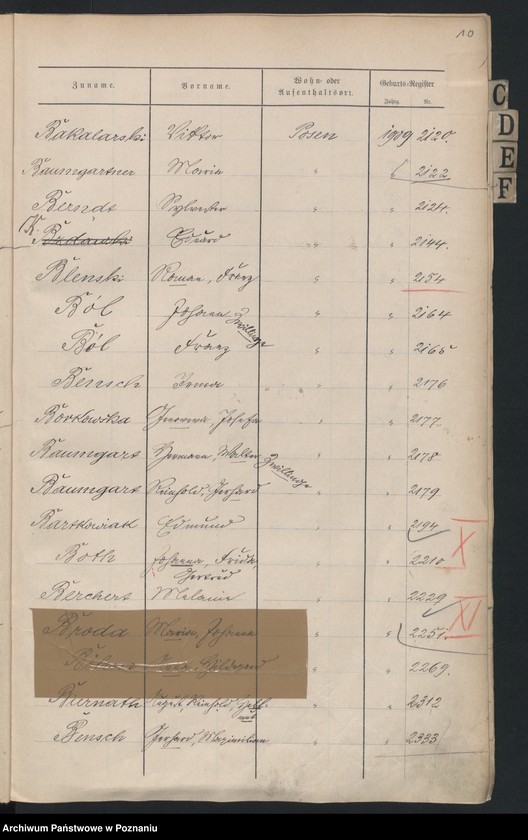 10
Zuname. Vorname. Wohn- oder Aufenthaltsort. Geburts-Register
Jahrg. Nr.
Bakalarski Viktor Posen 1909 2120.
Baumgartner Maria " 2122
Berndt Sylvester " " 2124.
K. Eduard " " 2144.
Blenski Roman, Franz " " 2154
Ból Johann Zwillinge " " 2164
Ból Franz " " 2165
Bensch Irma " " 2176
Borkowska Josefa " " 2177.
Baumgart Hermann, Walter Zwillinge " " 2178
Baumgart Reinhold, Gerhard " " 2179
Bartkowiak Edmund " " 2194
Both Johanna, Frieda, " " 2210
Gertrud
Berchert Melanie " " 2229
Broda Maria, Johanna " " 2251
Hildegard " " 2269.
Burnath August, Reinhold, " " 2312
Bensch Gerhard, Maximilian " " 2333
X
XI
C
D
E
F
Archiwum Państwowe w Poznaniu